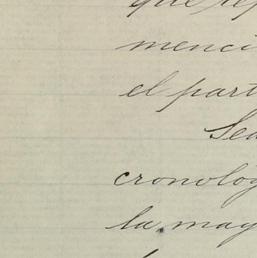 que rep
menci
el part
Sea
cronolog
la may